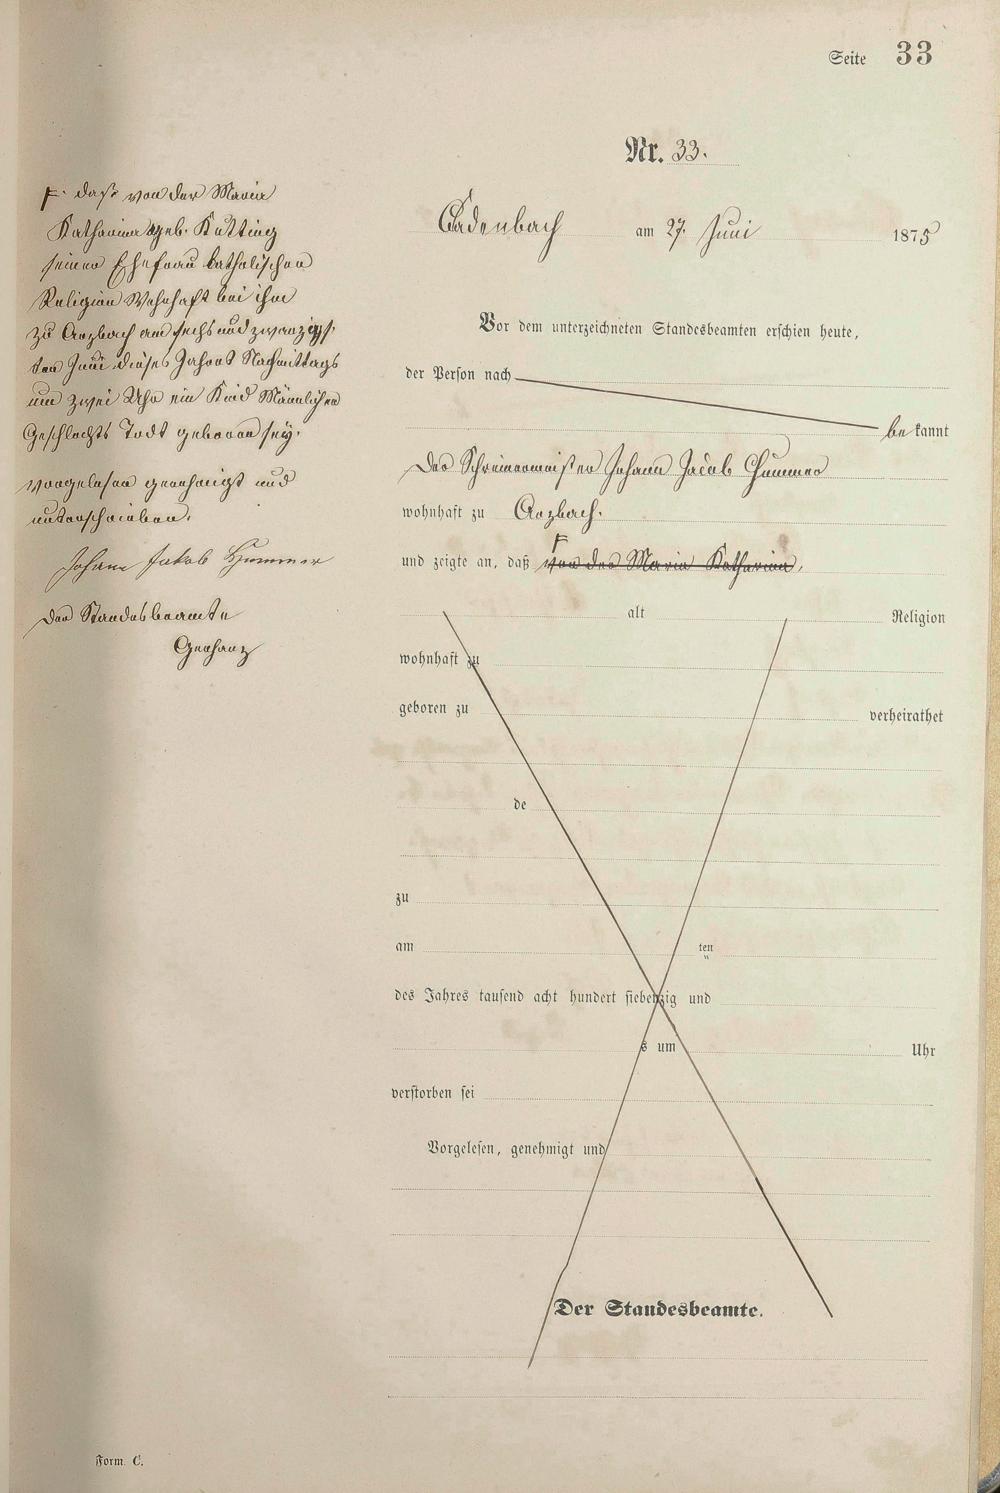 Seite 33
Nr. 33.
Cadenbach am 27. Juni 1875
Vor dem unterzeichneten Standesbeamten erschien heute,
der Person nach
bekannt
Der Schreinermeister Johann Jacob Hummer
wohnhaft zu Arzbach.
und zeigte an, daß F von der Maria Katharina,
alt Religion
wohnhaft zu
geboren zu verheirathet
de
zu
am ten
des Jahres tausend acht hundert siebenzig und
s um Uhr
verstorben sei
Vorgelesen, genehmigt und
Der Standesbeamte.
F. daß von der Maria
Katharina geb. Kütting
seiner Ehefrau katholischen
Religion Wohnhaft bei ihm
zu Arzbach am sechs und zwanzigs-
ten Juni dieses Jahres Nachmittags
um zwei Uhr ein Kind Männlichen
Geschlechts Todt geboren sey.
vorgelesen genehmigt und
unterschrieben.
Johann Jakob Hummer
Der Standesbeamte
Gerharz
Form. C.